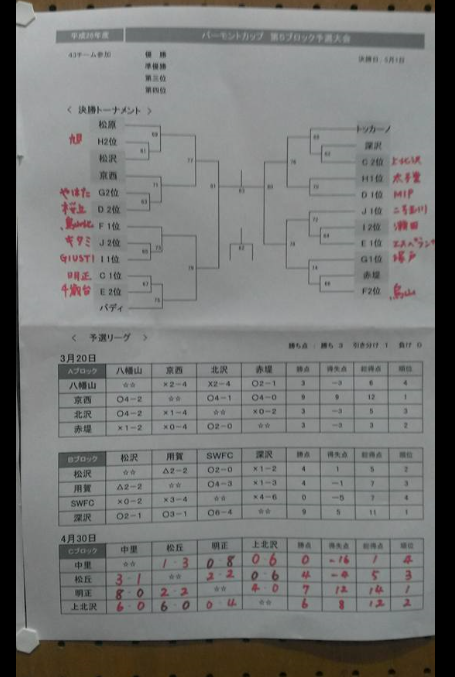 平成26年度 バーモントカップ 第5ブロック予選大会
43チーム参加 優勝 決勝日：5月1日
準優勝
第三位
第四位
< 決勝トーナメント >
松原 トッカーノ
旭 H2位 深沢
松沢 C2位 上北沢
京西 H1位
やはた G2位 D1位 MIP
桜丘 D2位 J1位
F1位 I2位 瀬田
キタミ J2位 E1位
GIUSTI I1位 G1位
明正 C1位 赤堤
千歳台 E2位 F2位 烏山
バディ
< 予選リーグ >
勝ち点 : 勝ち 3 引き分け 1 負け 0
3月20日
Aブロック 八幡山 京西 北沢 赤堤 勝点 得失点 総得点 順位
八幡山 ☆☆ ×2−4 X2−4 〇2−1 3 −3 6 4
京西 〇4−2 ☆☆ 〇4−1 〇4−0 9 9 12 1
北沢 〇4−2 ×1−4 ☆☆ ×0−2 3 −3 5 3
赤堤 ×1−2 ×0−4 〇2−0 ☆☆ 3 −3 3 2
Bブロック 松沢 用賀 SWFC 深沢 勝点 得失点 総得点 順位
松沢 ☆☆ △2−2 〇2−0 ×1−2 4 1 5 2
用賀 △2−2 ☆☆ 〇4−3 ×1−3 4 −1 7 3
SWFC ×0−2 ×3−4 ☆☆ ×4−6 0 −5 7 4
深沢 〇2−1 〇3−1 〇6−4 ☆☆ 9 5 11 1
4月30日
Cブロック 中里 松丘 明正 上北沢 勝点 得失点 総得点 順位
中里 ☆☆ 1 3 0 8 0 6 0 −16 1 4
松丘 3 1 ☆☆ 2 2 0 6 4 −4 5 3
明正 8 0 2 2 ☆☆ 4 0 7 12 14 1
上北沢 6 0 6 0 0 4 ☆☆ 6 8 12 2